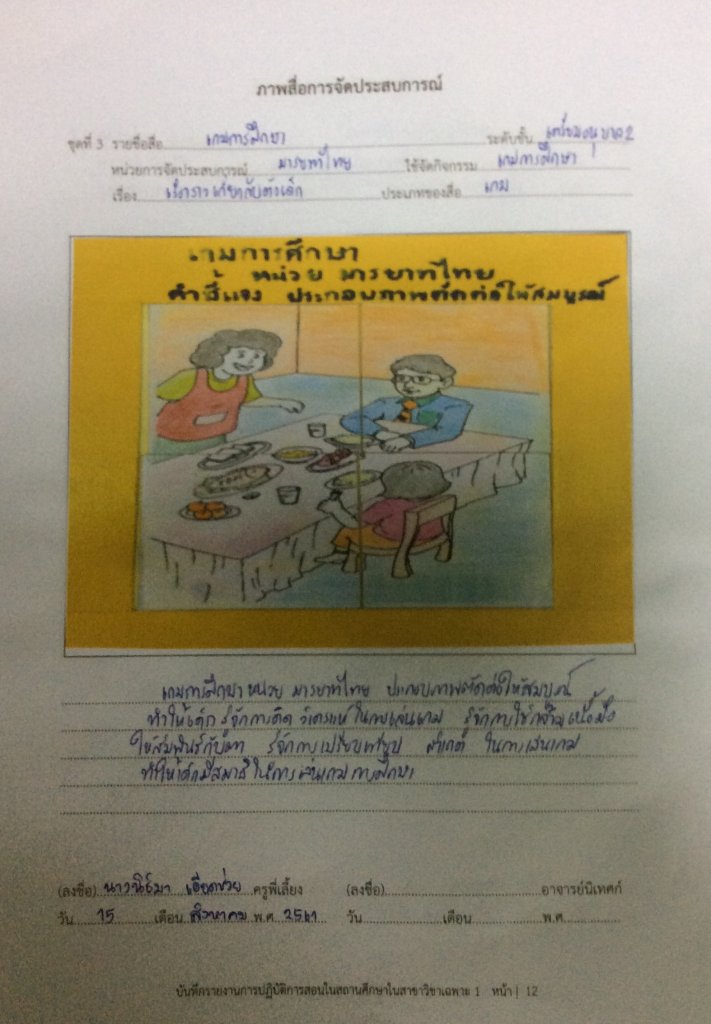 ภาพสื่อการจัดประสบการณ์
ชุดที่ 3 รายชื่อสื่อ เกมการศึกษา ระดับชั้น เตรียมอนุบาล 2
หน่วยการจัดประสบการณ์ มารยาทไทย ใช้จัดกิจกรรม เกมการศึกษา
เรื่อง เรื่องราวเกี่ยวกับตัวเด็ก ประเภทของสื่อ เกม
เกมการศึกษา
หน่วย มารยาทไทย
คำชี้แจง ประกอบภาพตัดต่อให้สมบูรณ์
เกมการศึกษา หน่วย มารยาทไทย ประกอบภาพตัดต่อให้สมบูรณ์
ทำให้เด็ก รู้จักการคิด วิเคราะห์ ในการเล่นเกม รู้จักการใช้กล้ามเนื้อมือ
ให้สัมพันธ์กับตา รู้จักการเปรียบเทียบ สังเกต ในการเล่นเกม
ทำให้เด็กมีสมาธิ ในการเล่นเกมการศึกษา
(ลงชื่อ) ครูพี่เลี้ยง (ลงชื่อ) อาจารย์นิเทศก์
วัน 15 เดือน สิงหาคม พ.ศ. 2561 วัน เดือน พ.ศ.
บันทึกรายงานการปฏิบัติการสอนในสถานศึกษาในสาขาวิชาเฉพาะ 1 หน้า | 12